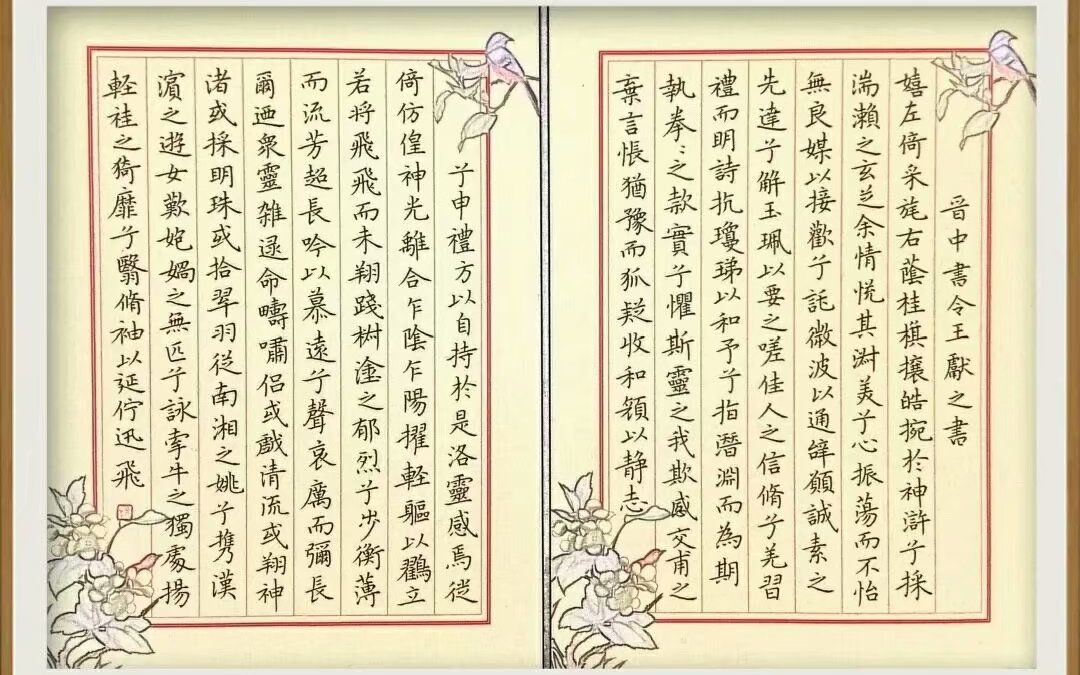 晋中書令王獻之書
嬉左倚采旄右蔭桂棋攘皓捥於神滸兮採
湍瀨之玄芝余情恱其淑美兮心振蕩而不怡
無良媒以接歡兮託微波以通辞願誠素之
先達兮解玉珮以要之嗟佳人之信脩兮羌習
禮而明詩抗瓊珶以和予兮指潛淵而為期
執拳〻之款實兮懼斯靈之我欺感交甫之
棄言悵猶豫而狐疑收和顏以静志
兮申禮方以自持於是洛靈感焉従
倚仿偟神光離合乍陰乍陽擢軽軀以鸖立
若将飛飛而未翔踐椒塗之郁烈兮步衡薄
而流芳超長吟以慕遠兮聲哀厲而彌長
爾迺衆靈雑遝命疇嘯侶或戯清流或翔神
渚或採明珠或拾翠羽従南湘之姚兮携漢
濱之遊女歎匏媧之無匹兮詠牽牛之獨處揚
軽袿之猗靡兮翳脩袖以延佇迅飛